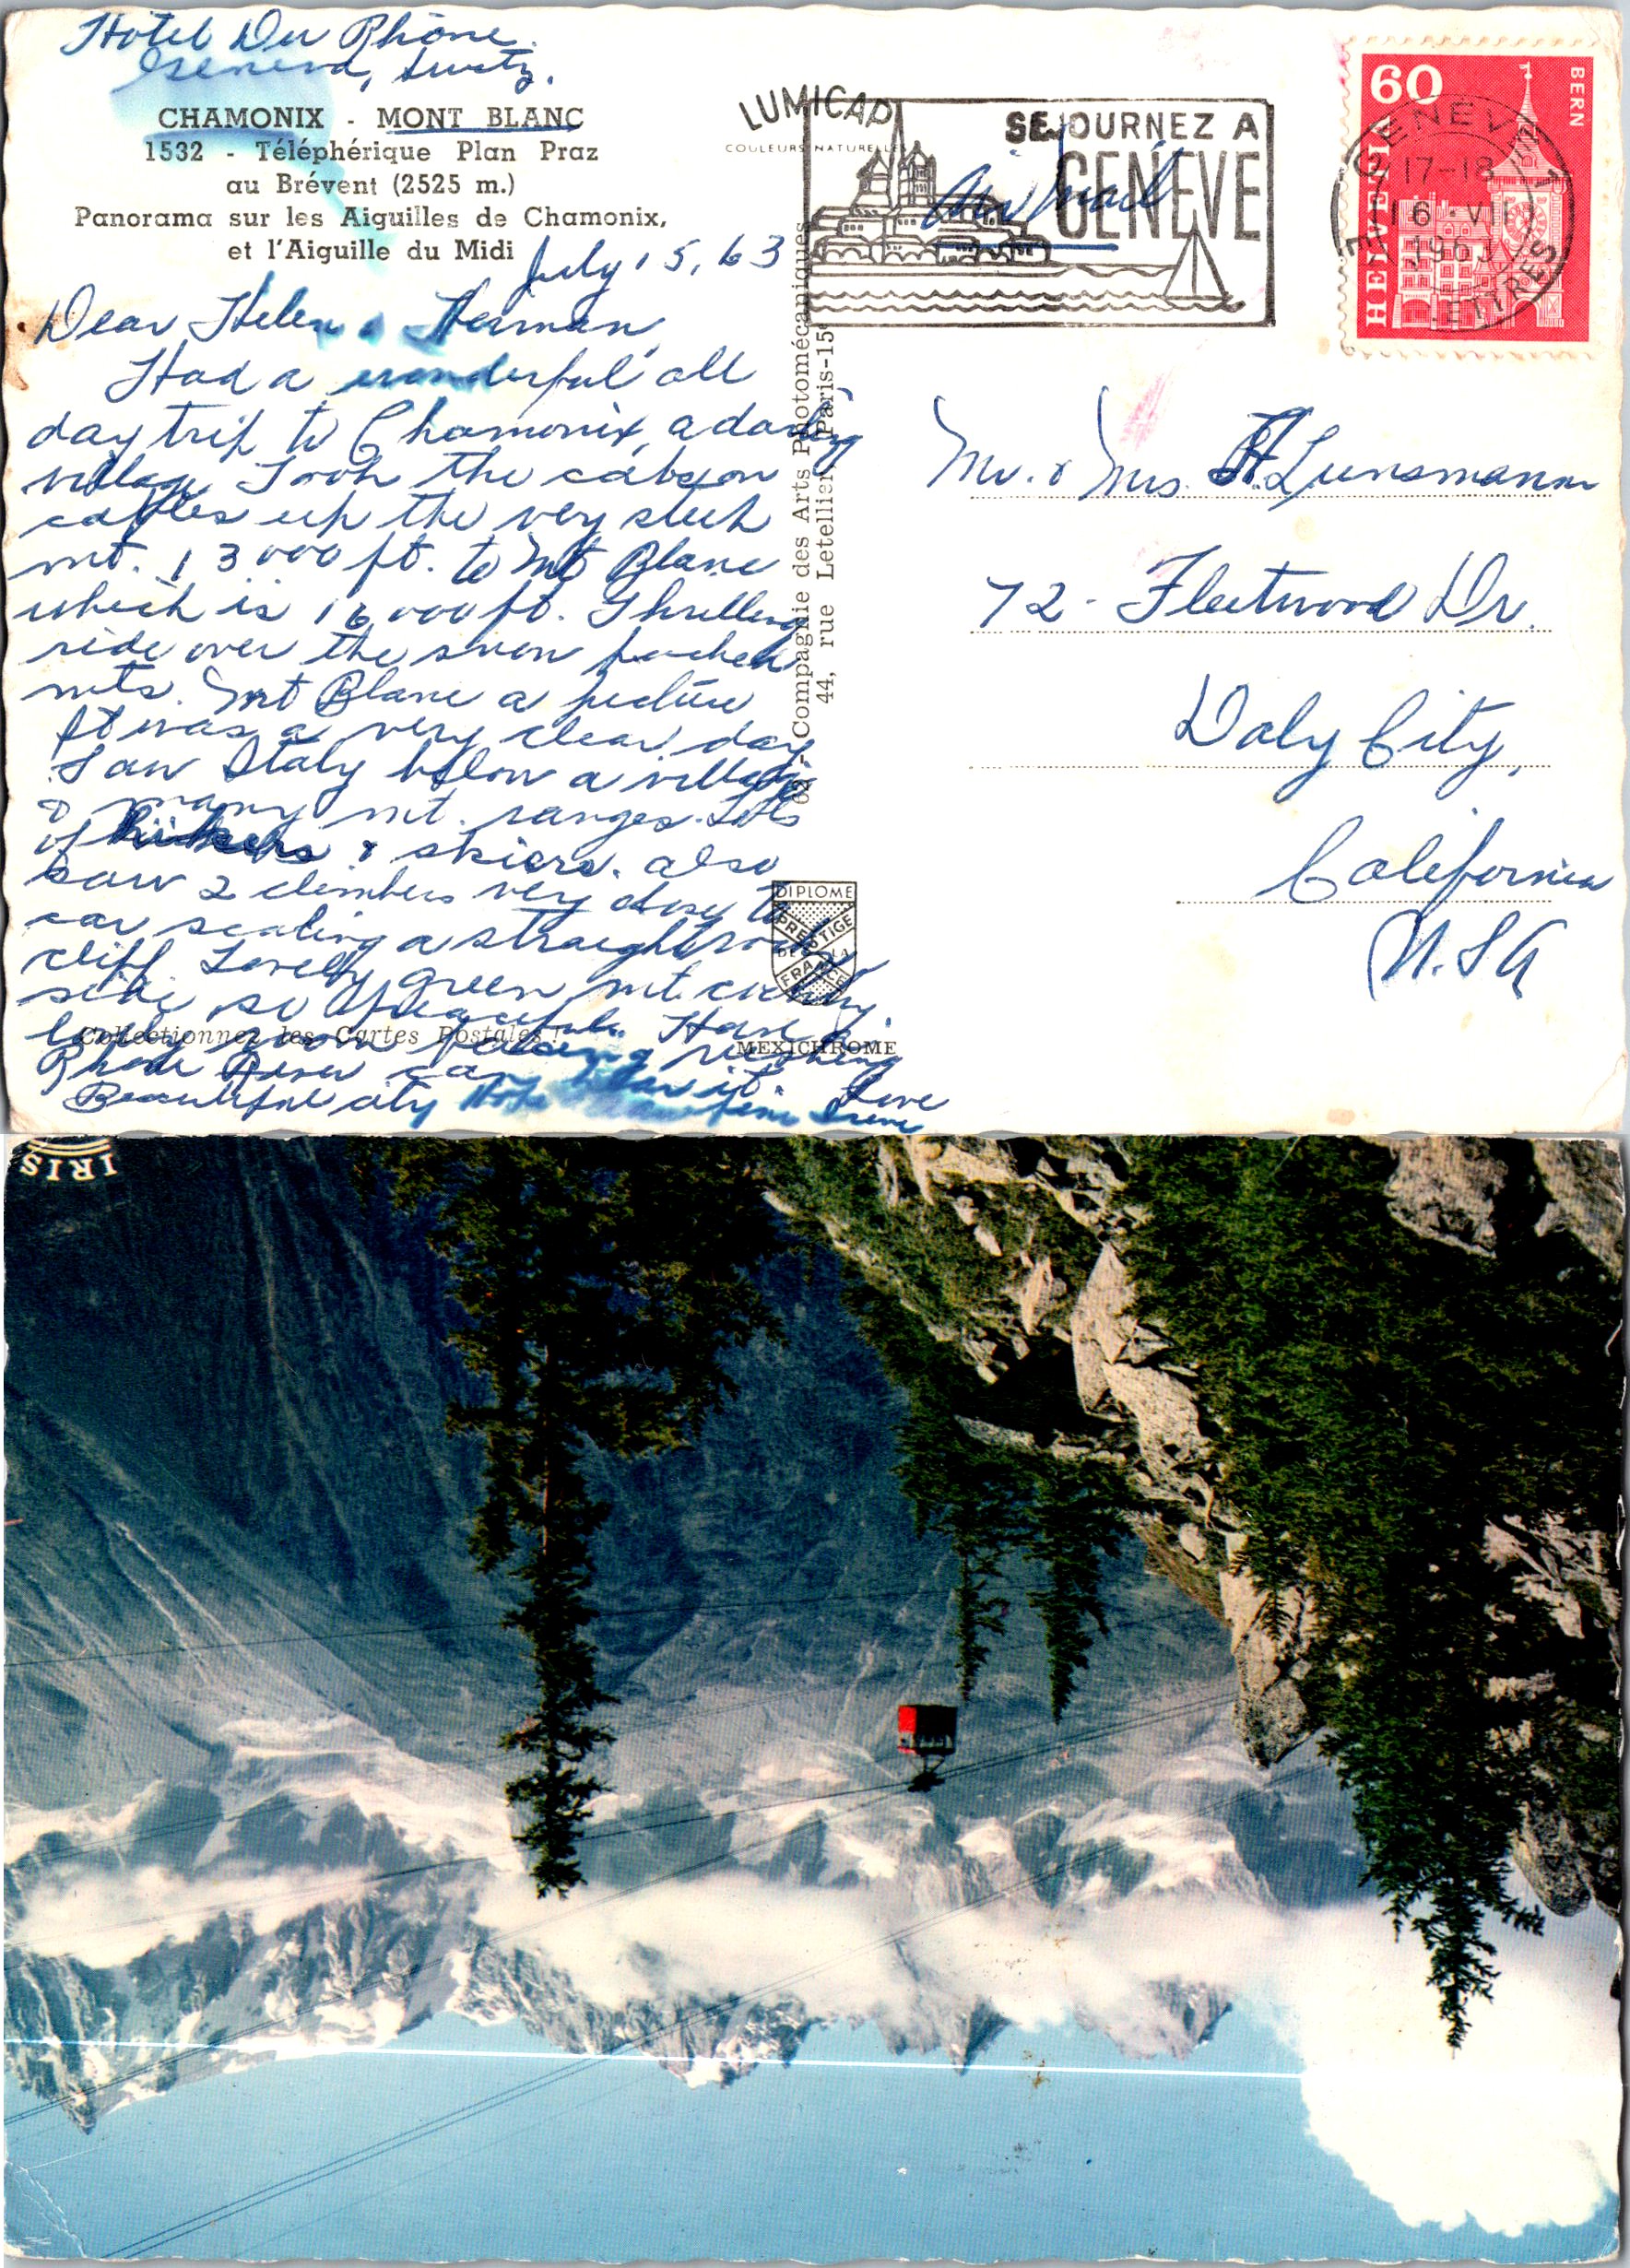 Hotel Du Rhône.
Geneva, Switz.
CHAMONIX - MONT BLANC
1532 - Téléphérique Plan Praz
au Brévent (2525 m.)
Panorama sur les Aiguilles de Chamonix,
et l'Aiguille du Midi
July 15, 63
Dear Helen & Herman,
Had a wonderful all
day trip to Chamonix, a darling
village. Took the cabs on
cables up the very steep
mt. 13000 ft. to Mt Blanc
which is 16000 ft. Thrilling
ride over the snow packed
mts. Mt Blanc a picture
It was a very clear day
Saw Italy below a village
& many mt. ranges. Lots
of hikers & skiers. also
saw 2 climbers very close to
car scaling a straight rocky
cliff. Lovely green mt. country
side, so peaceful. Have
lovely room facing rushing
Rhone River can hear it.
Beautiful city Love
Irene
LUMICAP
COULEURS NATURELLES
SEJOURNEZ A
GENEVE
Air Mail
60
BERN
HELVETIA
GENEVE 1
17-18
16.VII
1963
LETTRES
62 - Compagnie des Arts Photomécaniques
44, rue Letellier, Paris-15e
Mr. & Mrs. H. Lunsmann
72 - Fleetwood Dr.
Daly City,
California
U.S.A
DIPLOME
PRESTIGE
DE LA
FRANCE
Collectionnez les Cartes Postales !
MEXICHROME
IRIS